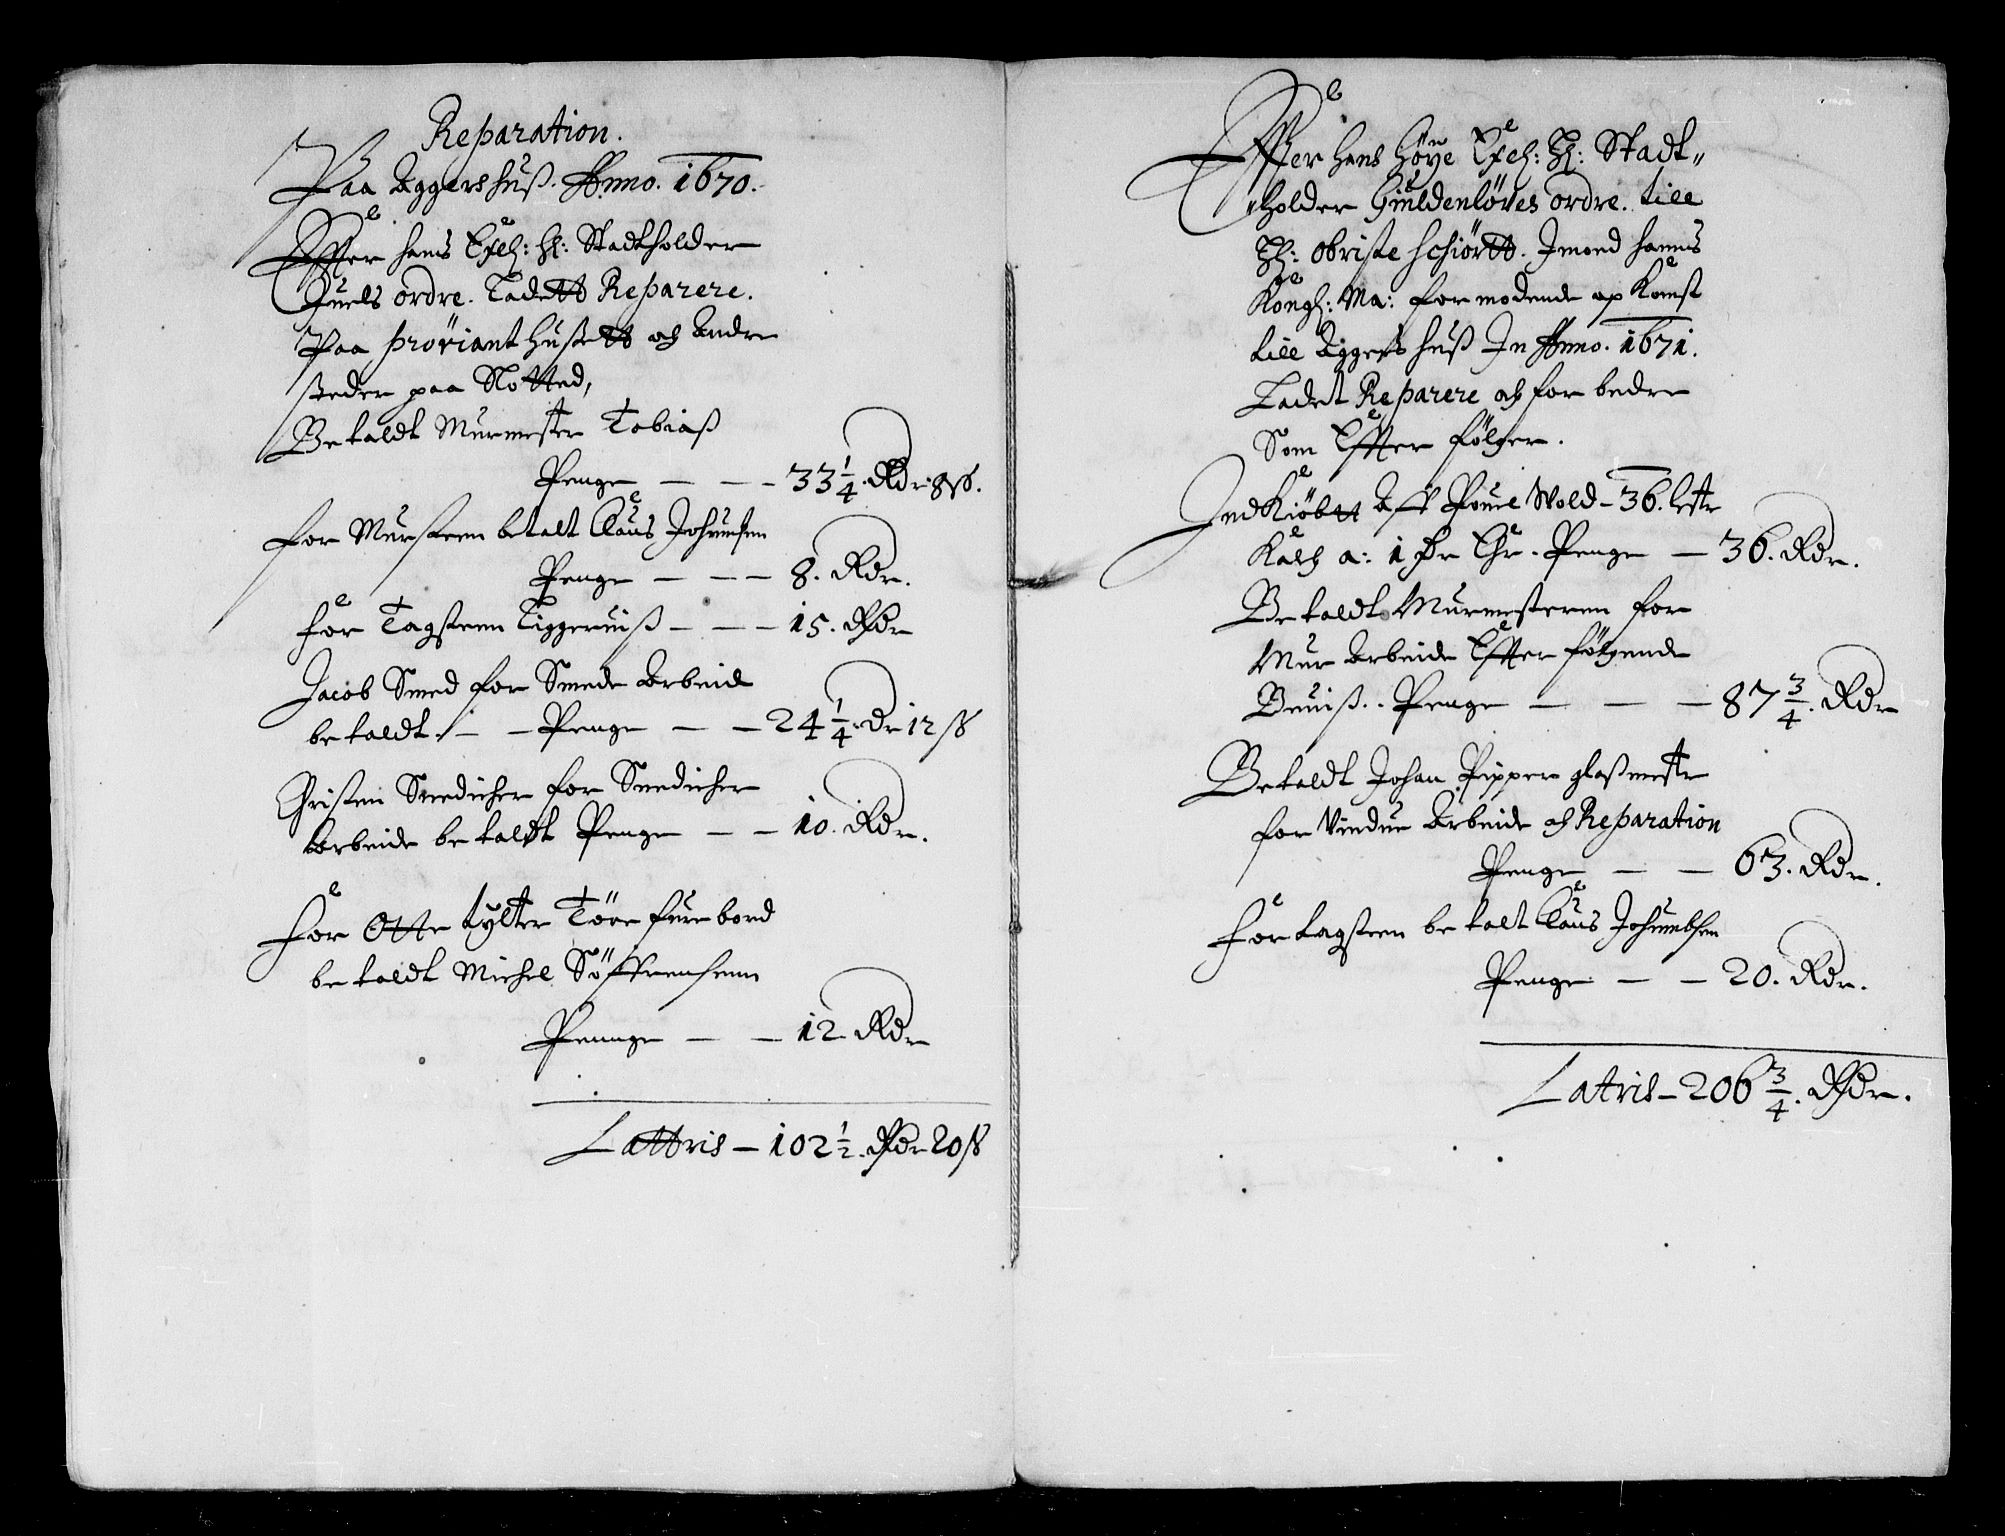 Reparation.
Paa Aggershuß. Anno. 1670.
Effter hans Excel: Hl: Stadtholder
Juels ordre. Ladett Reparere.
Paa proviant husett och Andre
steder paa Slotted,
Betaldt Murmester Tobiaß
Penge — — — 33 1/4. Rdr. 8 ß.
for Mursteen betalt Claus Johansen
Penge — — — 8. Rdr.
for Tagsteen — — — 15. Rdr
Jacob Smed for Smede Arbeid
betaldt. — — Penge — — 24 1/4. Dr 12 ß
Christen Snedicher for Snedicher
Arbeide betaldt Penge — — 10. Rdr.
for Otte tylter Töre fure bord
betaldt Michel Söffrensenn
Pennge — — 12 Rdr
Lattris — 102 1/2. Rdr 20 ß
Effter hans Höye Excel: Hl: Stadt„
„holder Guldenlöves ordre. till
Hl: Obriste Schiörtt. Imoed hanns
Kongl: Ma: formodende op Komst
till Aggers huß In Anno. 1671.
Ladet Reparere och forbedre
Som Effter fölger.
Ind Kiöbtt Aff Pouel Wold – 36. lestr
Kalch a: 1 Penge — 36. Rdr.
Betaldt Murmesteren for
Mur Arbeide Effter fölgende
Beviß.. Penge — — — 87 3/4. Rdr
Betaldt Johan Pipper glaßmestr
for Vindue Arbeide och Reparation
Penge — — 63. Rdr.
for tagsteen betalt Claus Johannsen
Penge — — 20. Rdr.
Latris – 206 3/4. Rdr.